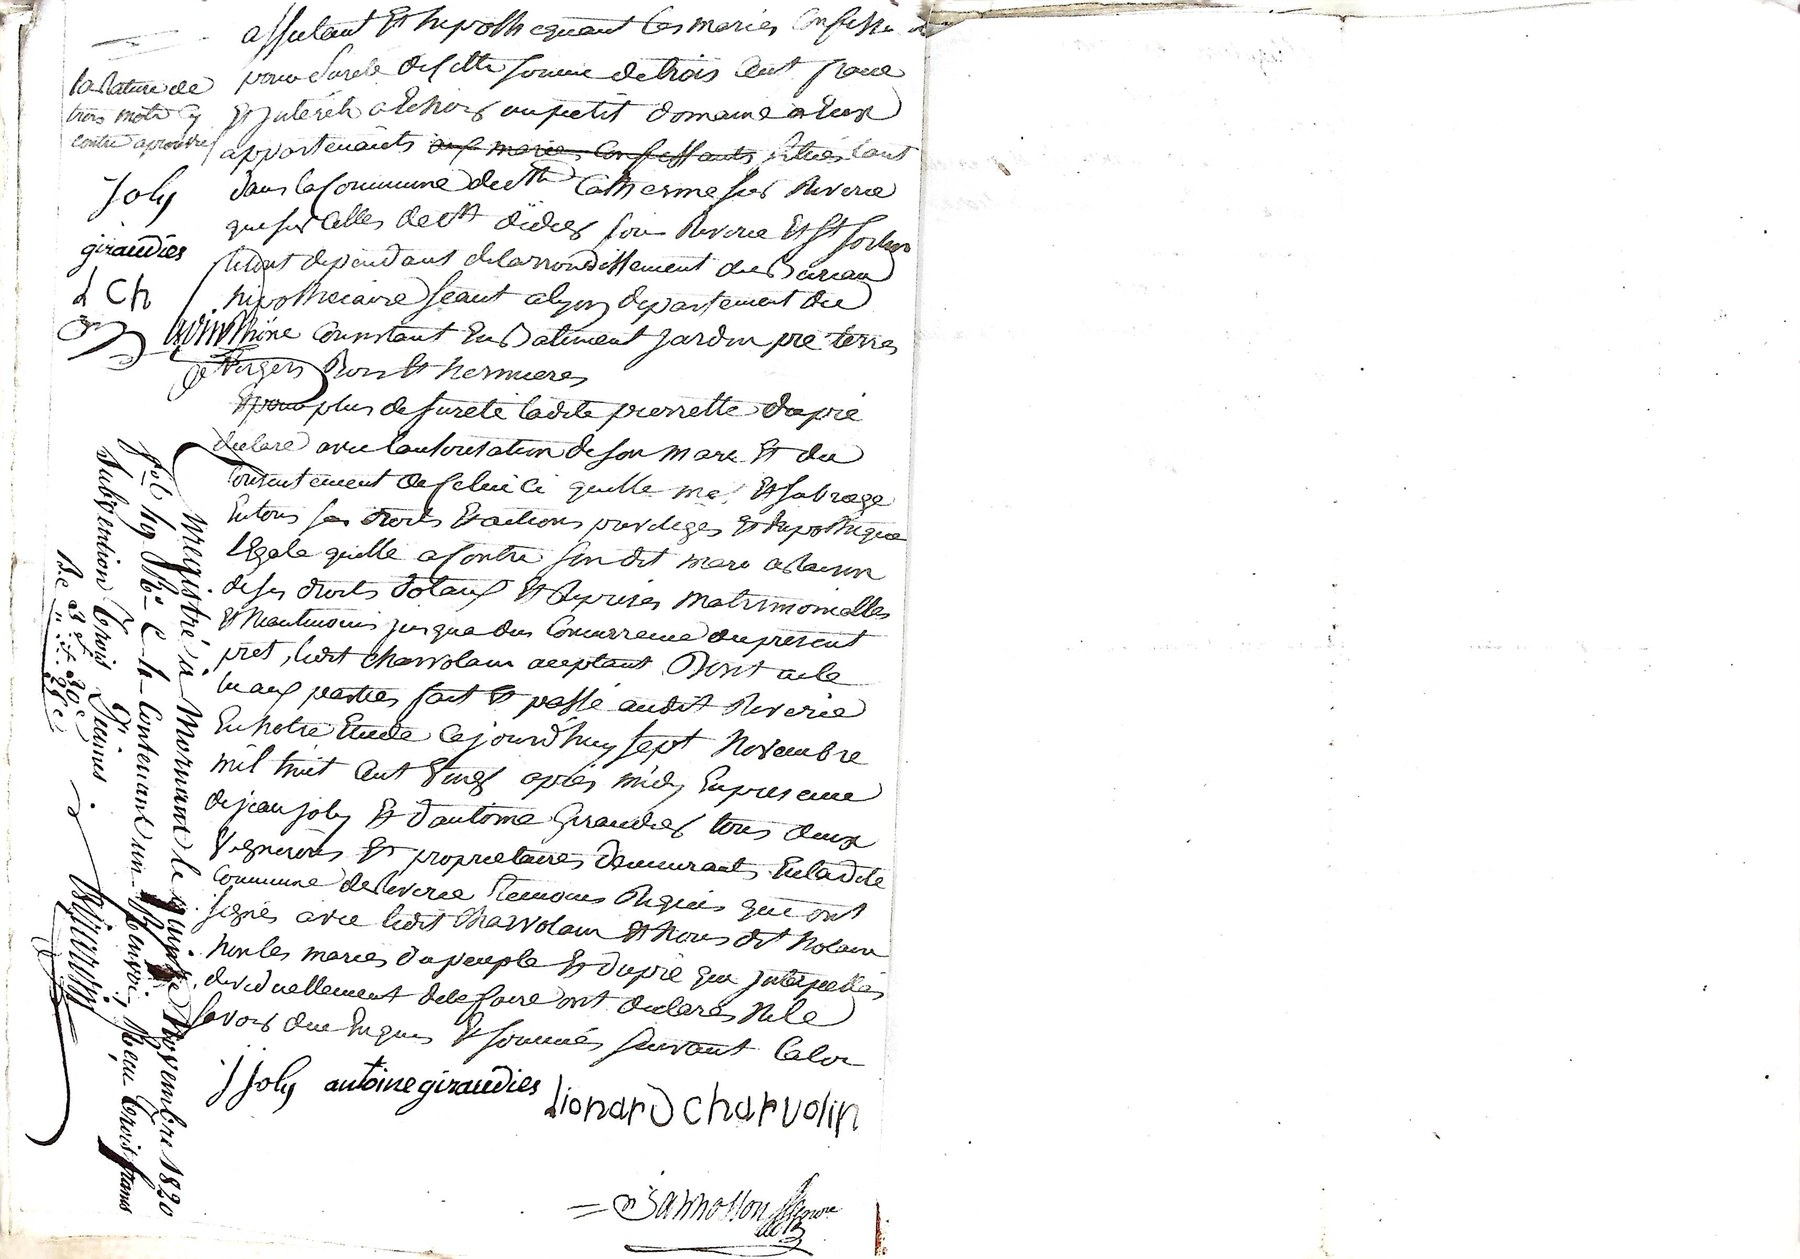 assurant Et hipothequant les mariés Confessants
pour Sureté de cette somme de trois Cent franc
Et Intérêts a Echoir un petit domaine a Eux
appartenants aux mariés Confessants situés tant
dans la Commune de Ste Catherine sur Riverie
que sur Celles de St didier sous Riverie Et St Sorlin
le tout dependant de larrondissement du Bureau
hipothecaire séant a lyon departement du
Rhône Consistant En Batiment Jardin pré terres
Vergers Bois Et hermieres
Et pour plus de sureté ladite pierrette dupré
declare avec lautorisation de son mari Et du
Consentement de celui ci quelle met Et subroge
En tous ses droits Et actions privileges Et hipothèque
Légale quelle a Contre son dit mari a Raison
de ses droits dotaux Et Reprises matrimonialles
Et neantmoins jusqua dus Concurrence du present
pret, ledit Charvolain aceptant Dont acte
lu aux parties fait Et passé audit Riverie
En notre Etude Cejourd'huy sept Novembre
mil huit Cent Vingt après midy En presence
de jean joly Et d'antoine Giraudier tous deux
Vignerons Et proprietaires demeurants En ladite
Commune de Riverie temoins Requis qui ont
signés avec ledit Charvolain Et Nous dit Notaire
Non les mariés dupeuple Et dupré qui Interpellés
individuellement de le faire ont declarés Ne le
savoir due Enquis Et sommés suivant la loi
j Joly antoine giraudier
lionard charvolin
la Rature de
trois mots cy
contre aprouvée
Joly
giraudier
l Ch
Enregistré à Mornant le quinze Novembre 1820
fol. 69 Ro. C. 4. Contenant un Renvoi, Reçu trois francs
Subvention trois Decimes.